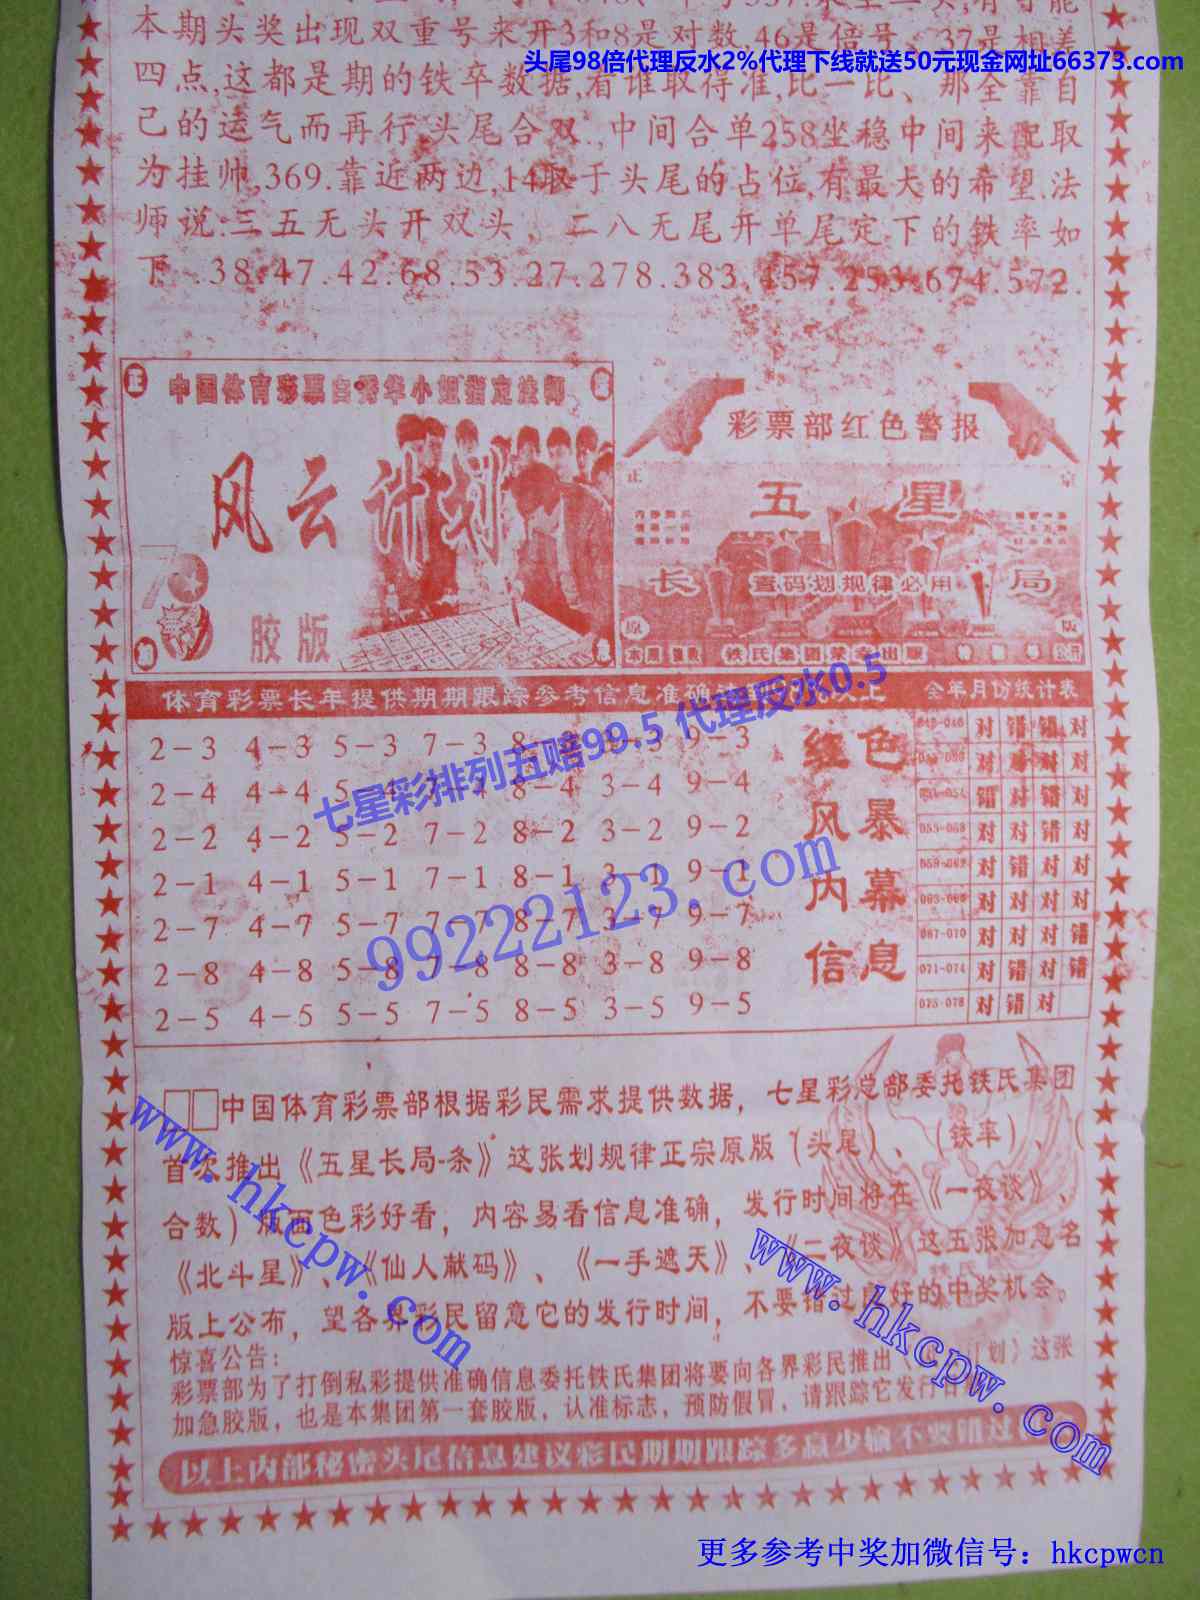 本期头奖出现双重号来开3和8是对数,46是倍号、37是相差
头尾98倍代理反水2%代理下线就送50元现金网址66373.com
四点,这都是期的铁卒数据,看谁取得准,比一比、那全靠自
己的运气而再行,头尾合双.,中间合单258坐稳中间来配取
为挂帅,369.靠近两边,14取于头尾的占位,有最大的希望.法
师说:三五无头开双头，二八无尾开单尾定下的铁率如
下.38.47.42.68.53.27.278.383.457.253.674.572.
正
中国体育彩票白秀华小姐指定法师
风云计划
胶版
彩票部红色警报
正
宗
五星
长
查码划规律必用
局
原
版
铁氏集团荣幸出版
体育彩票长年提供期期跟踪参考信息准确
全年月份统计表
2－3 4－3 5－3 7－3 8－3 3－3 9－3
2－4 4－4 5－4 7－4 8－4 3－4 9－4
2－2 4－2 5－2 7－2 8－2 3－2 9－2
2－1 4－1 5－1 7－1 8－1 3－1 9－1
2－7 4－7 5－7 7－7 8－7 3－7 9－7
2－8 4－8 5－8 7－8 8－8 3－8 9－8
2－5 4－5 5－5 7－5 8－5 3－5 9－5
红色
风暴
内幕
信息
对 错 错 对
对 对 对 对
错 对 错 对
055-058 对 对 错 对
059-062 对 错 对 对
063-066 对 对 对 对
067-070 对 对 对 错
071-074 对 错 对 错
075-078 对 错 对
七星彩排列五赔99.5 代理反水0.5
99222123.com
□□中国体育彩票部根据彩民需求提供数据，七星彩总部委托铁氏集团
首次推出《五星长局-条》这张划规律正宗原版（头尾）、（铁率）、（
合数）版面色彩好看，内容易看信息准确，发行时间将在《一夜谈》、
《北斗星》、《仙人献码》、《一手遮天》、《二夜谈》（这五张加急名
版上公布，望各界彩民留意它的发行时间，不要错过良好的中奖机会。
惊喜公告：
彩票部为了打倒私彩提供准确信息委托铁氏集团将要向各界彩民推出《风云计划》这张
加急胶版，也是本集团第一套胶版，认准标志，预防假冒，请跟踪它发行
以上内部秘密头尾信息建议彩民期期跟踪多赢少输不要错过
www.hkcpw.com
www.hkcpw.com
更多参考中奖加微信号：hkcpwcn